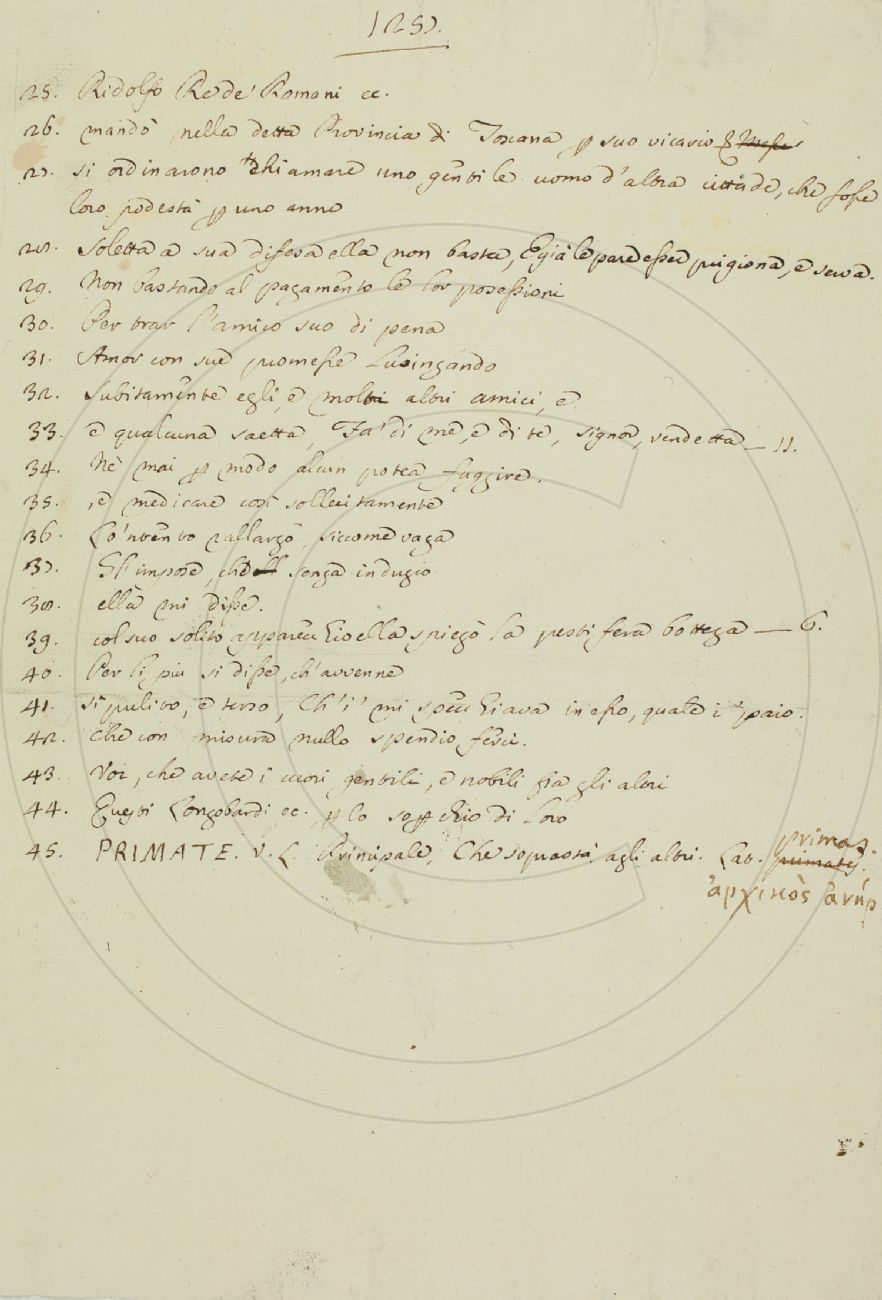 125).
25. Ridolfo Re de' Romani ec.
26. mandò nella detta Provincia di Toscana p suo vicario
27. si ordinarono chiamare uno gentile uomo d'altra cittade, che fosse
loro podestà p uno anno
28. Soletta a sua difesa ella non basta, E già le pare esser prigiona, e serva.
29. Non bastando al pagamento le lor posessioni
30. Per trar l'amico suo di pena
31. Amor con sue promesse Lusingando
32. Subitamente egli, e molti altri amici, e
33. e qualcuna saetta, Fa' di me, e di te, signor, vendetta — 11.
34. Nè mai p modo alcun potea fuggire.
35. , e medicare così sollecitamente
36. Lo 'ntento rallargò, siccome vaga
37. Gl'impose, che senza indugio
38. ella mi disse.
39. col suo solito apparecchio ella spiegò la pestifera bottega — 6.
40. Per li più si disse, ch'avvenne
41. sì pulito, e terso, Ch'i' mi specchiava in esso, quale i' paio.
42. che con misura nullo spendio ferci.
43. Voi, che avete i cuori gentili, e nobili fra gli altri
44. Questi Longobardi ec. p lo soppchio di Loro
45. PRIMATE. V. L. Principale, Che soprastà agli altri. Lat. primatis. primas.
ἀρχικὸς ἀνήρ